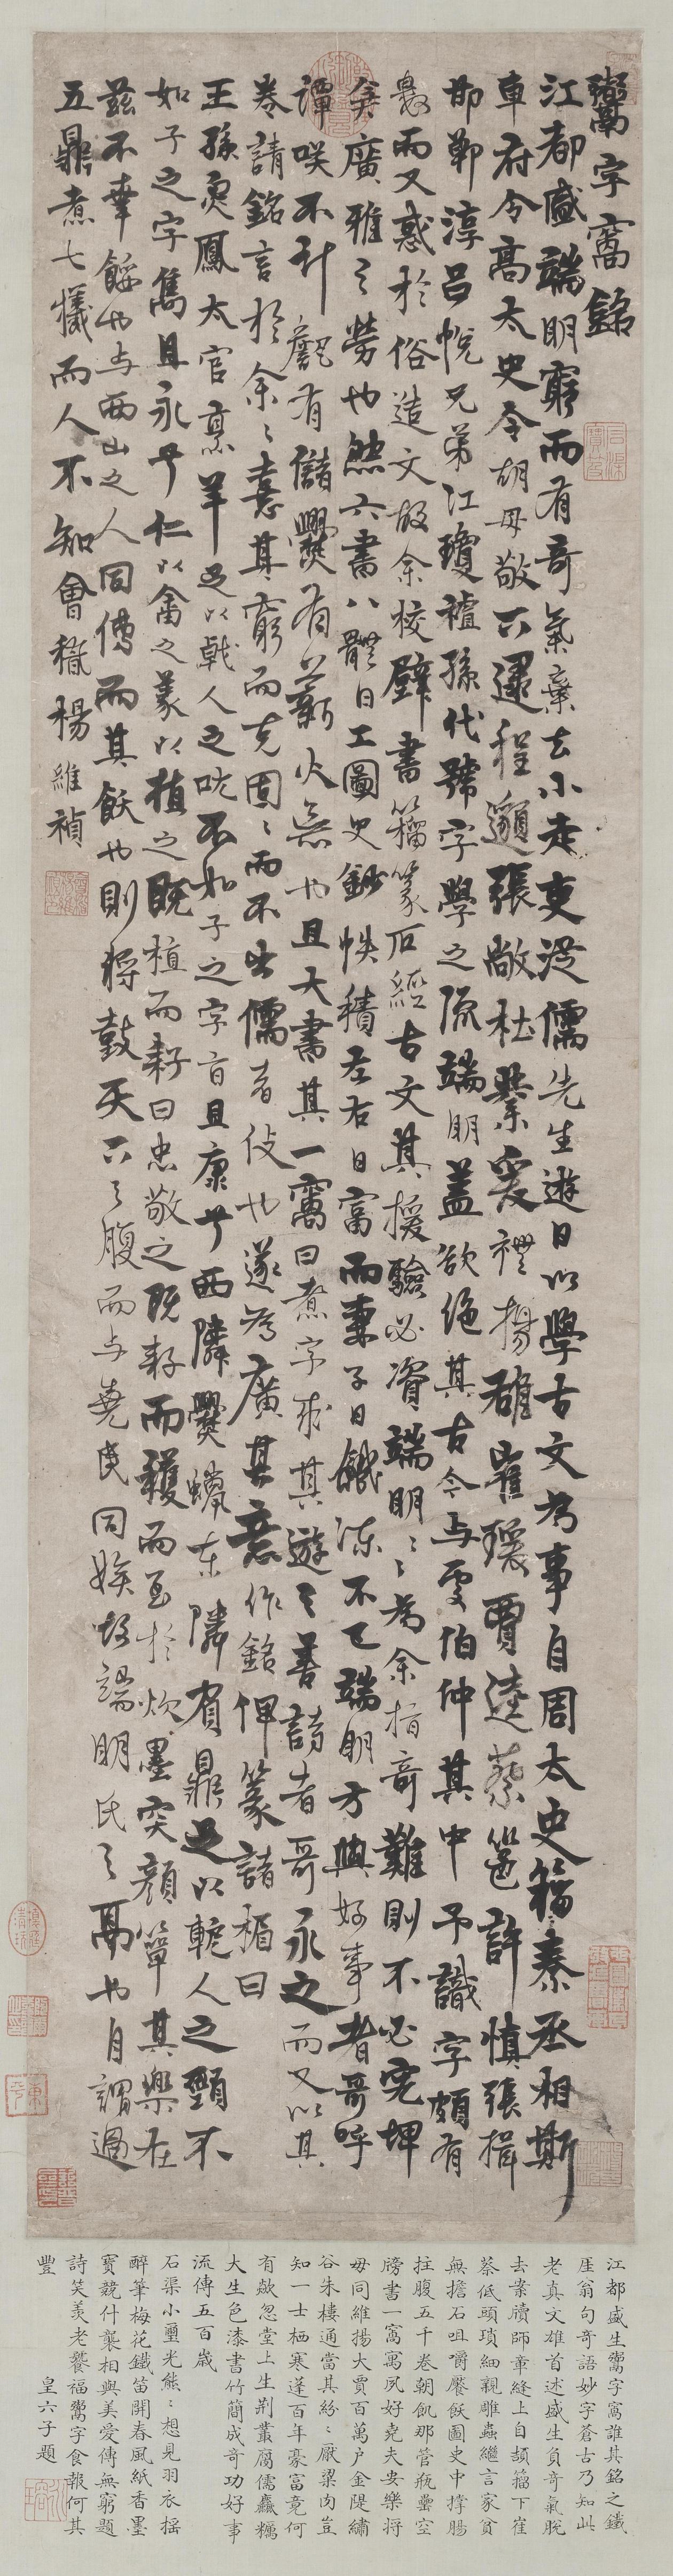 鬻字窩銘
江都盛端明窮而有奇氣棄去小走吏從儒先生遊日以學古文為事自周太史籀秦丞相斯
車府令高太史令胡毋敬下逮程邈張敞杜業爰禮揚雄崔瑗賈逵蔡邕許慎張揖
邯鄲淳呂忱兄弟江瓊襢孫代號字學之源端明蓋欲絕其古今与雯伯仲其中予識字頗有
而又惑於俗造文故余校壁書籀篆石經古文其援驗必資端明〻為余指奇難則不必完
廣雅之勞也然六書八體日工圖史鈔帙積左右日富而妻子日餓凍不已端明方與好事者哥呼
譚咲不計有儲爨有薪火無也且大書其一窩曰煮字求其遊之善詩者哥永之而又以其
卷請銘言於余〻憙其窮而克固〻而不出儒者伎也遂為廣其意作銘俾篆諸楣曰
王孫炙鳳太官烹羊足以戟人之吭不如子之字旨且康兮西隣爨蠟东隣有鼎足以軛人之頸不
如子之字雋且永兮仁以畬之義以植之既植而耔曰忠敬之既耔而穫而至於炊墨突顏簞其樂在
茲不幸餒也与西山之人同傳而其飫也則將鼓天下之腹而与堯民同嬉故端明氏之鬲也自謂過
五鼎煮七犧而人不知會稽楊維禎
江都盛生鬻字窩誰其銘之鐵
厓翁句奇語妙字蒼古乃知此
老真文雄首述盛生負奇氣脫
去案牘師章縫上自頡籀下崔
蔡低頭瑣細親雕蟲繼言家貧
無擔石咀嚼饜飫圖史中撐腸
拄腹五千卷朝飢那管瓶罍空
牓書一窩寓夙好堯夫安樂將
毋同維揚大賈百萬戶金隄繡
谷朱樓通當其紛〻厭粱肉豈
知一士栖寒蓬百年豪富竟何
有歘忽堂上生荆叢腐儒麤糲
大生色漆書竹簡成奇功好事
流傳五百歲
石渠小璽光熊〻想見羽衣揺
醉筆梅花鐵笛開春風紙香墨
寶競什襲相與美愛傳無窮題
詩笑羨老饕福鬻字食報何其
豐
皇六子題